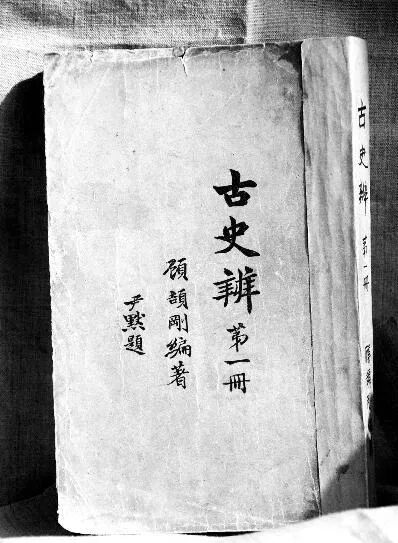 古史辨第一冊
顧頡剛編著
尹默題
古史辨 第一冊